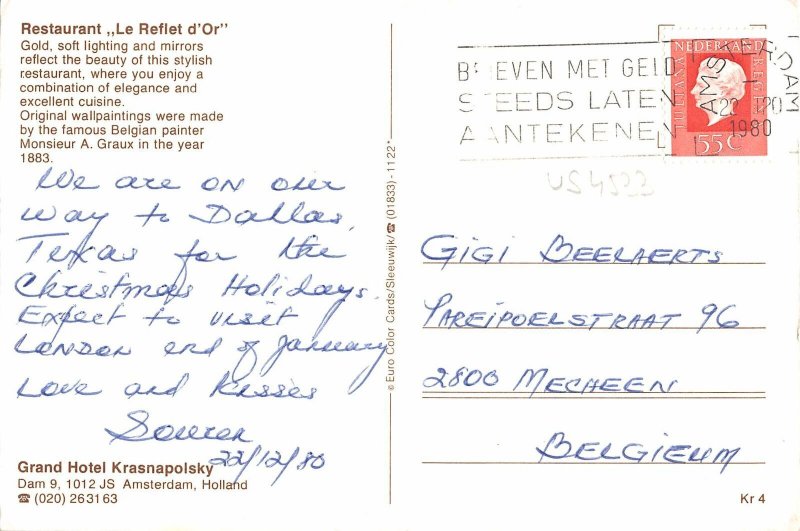 Restaurant „Le Reflet d'Or"
Gold, soft lighting and mirrors
reflect the beauty of this stylish
restaurant, where you enjoy a
combination of elegance and
excellent cuisine.
Original wallpaintings were made
by the famous Belgian painter
Monsieur A. Graux in the year
1883.
We are on our
way to Dallas,
Texas for the
Christmas Holidays.
Expect to visit
London end of January
Love and Kisses
22/12/80
Grand Hotel Krasnapolsky
Dam 9, 1012 JS Amsterdam, Holland
☎ (020) 263163
© Euro Color Cards/Sleeuwijk/☎ (01833)-1122*
BRIEVEN MET GELD
STEEDS LATEN
AANTEKENEN
AMSTERDAM
1980
NEDERLAND
JULIANA
REGINA
55C
US4522
GIGI BEELAERTS
PAREIPOELSTRAAT 96
2800 MECHEEN
BELGIEUM
Kr 4